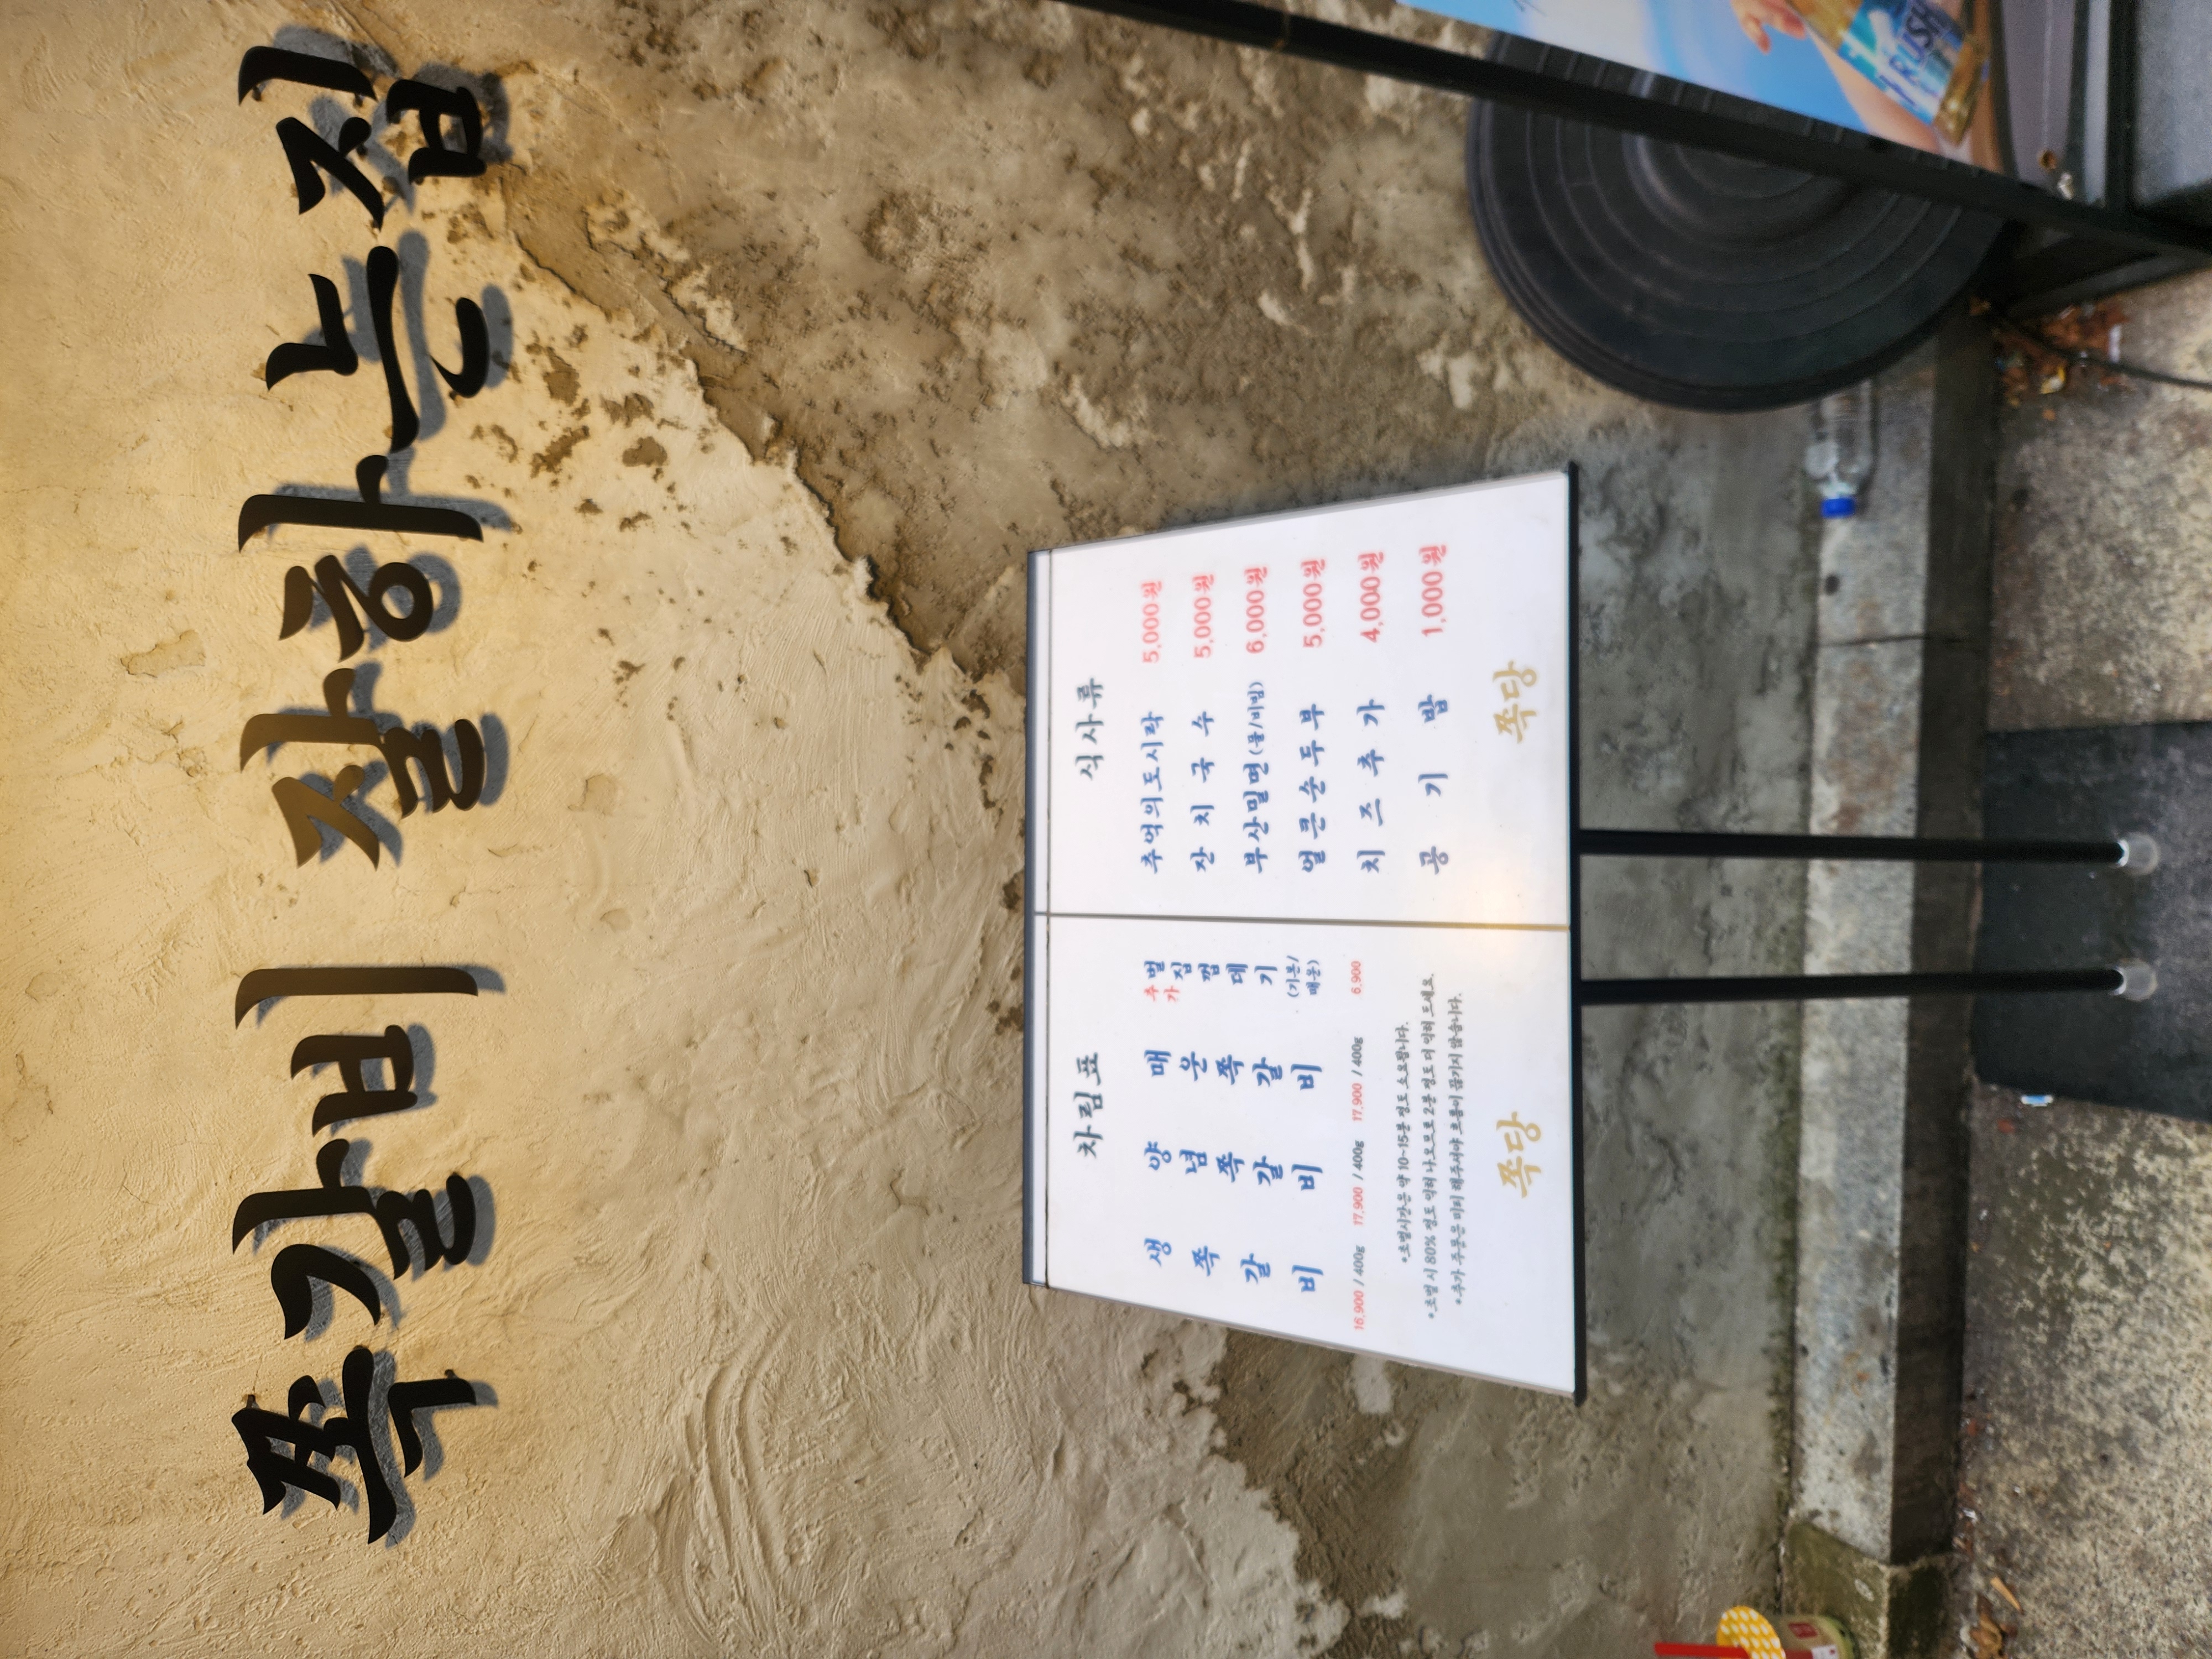 쪽갈비 잘하는집
차림표
생쪽갈비
16,900 / 400g
양념쪽갈비
17,900 / 400g
매운쪽갈비
17,900 / 400g
추가
벌집껍데기
(기본/매운)
6,900
*초벌시간은 약 10~15분 정도 소요됩니다.
*초벌 시 80% 정도 익혀 나오므로 2분 정도 더 익혀 드세요.
*추가 주문은 미리 해주셔야 흐름이 끊기지 않습니다.
쪽당
식사류
추억의도시락 5,000원
잔치국수 5,000원
부산밀면(물/비빔) 6,000원
얼큰순두부 5,000원
치즈추가 4,000원
공기밥 1,000원
쪽당